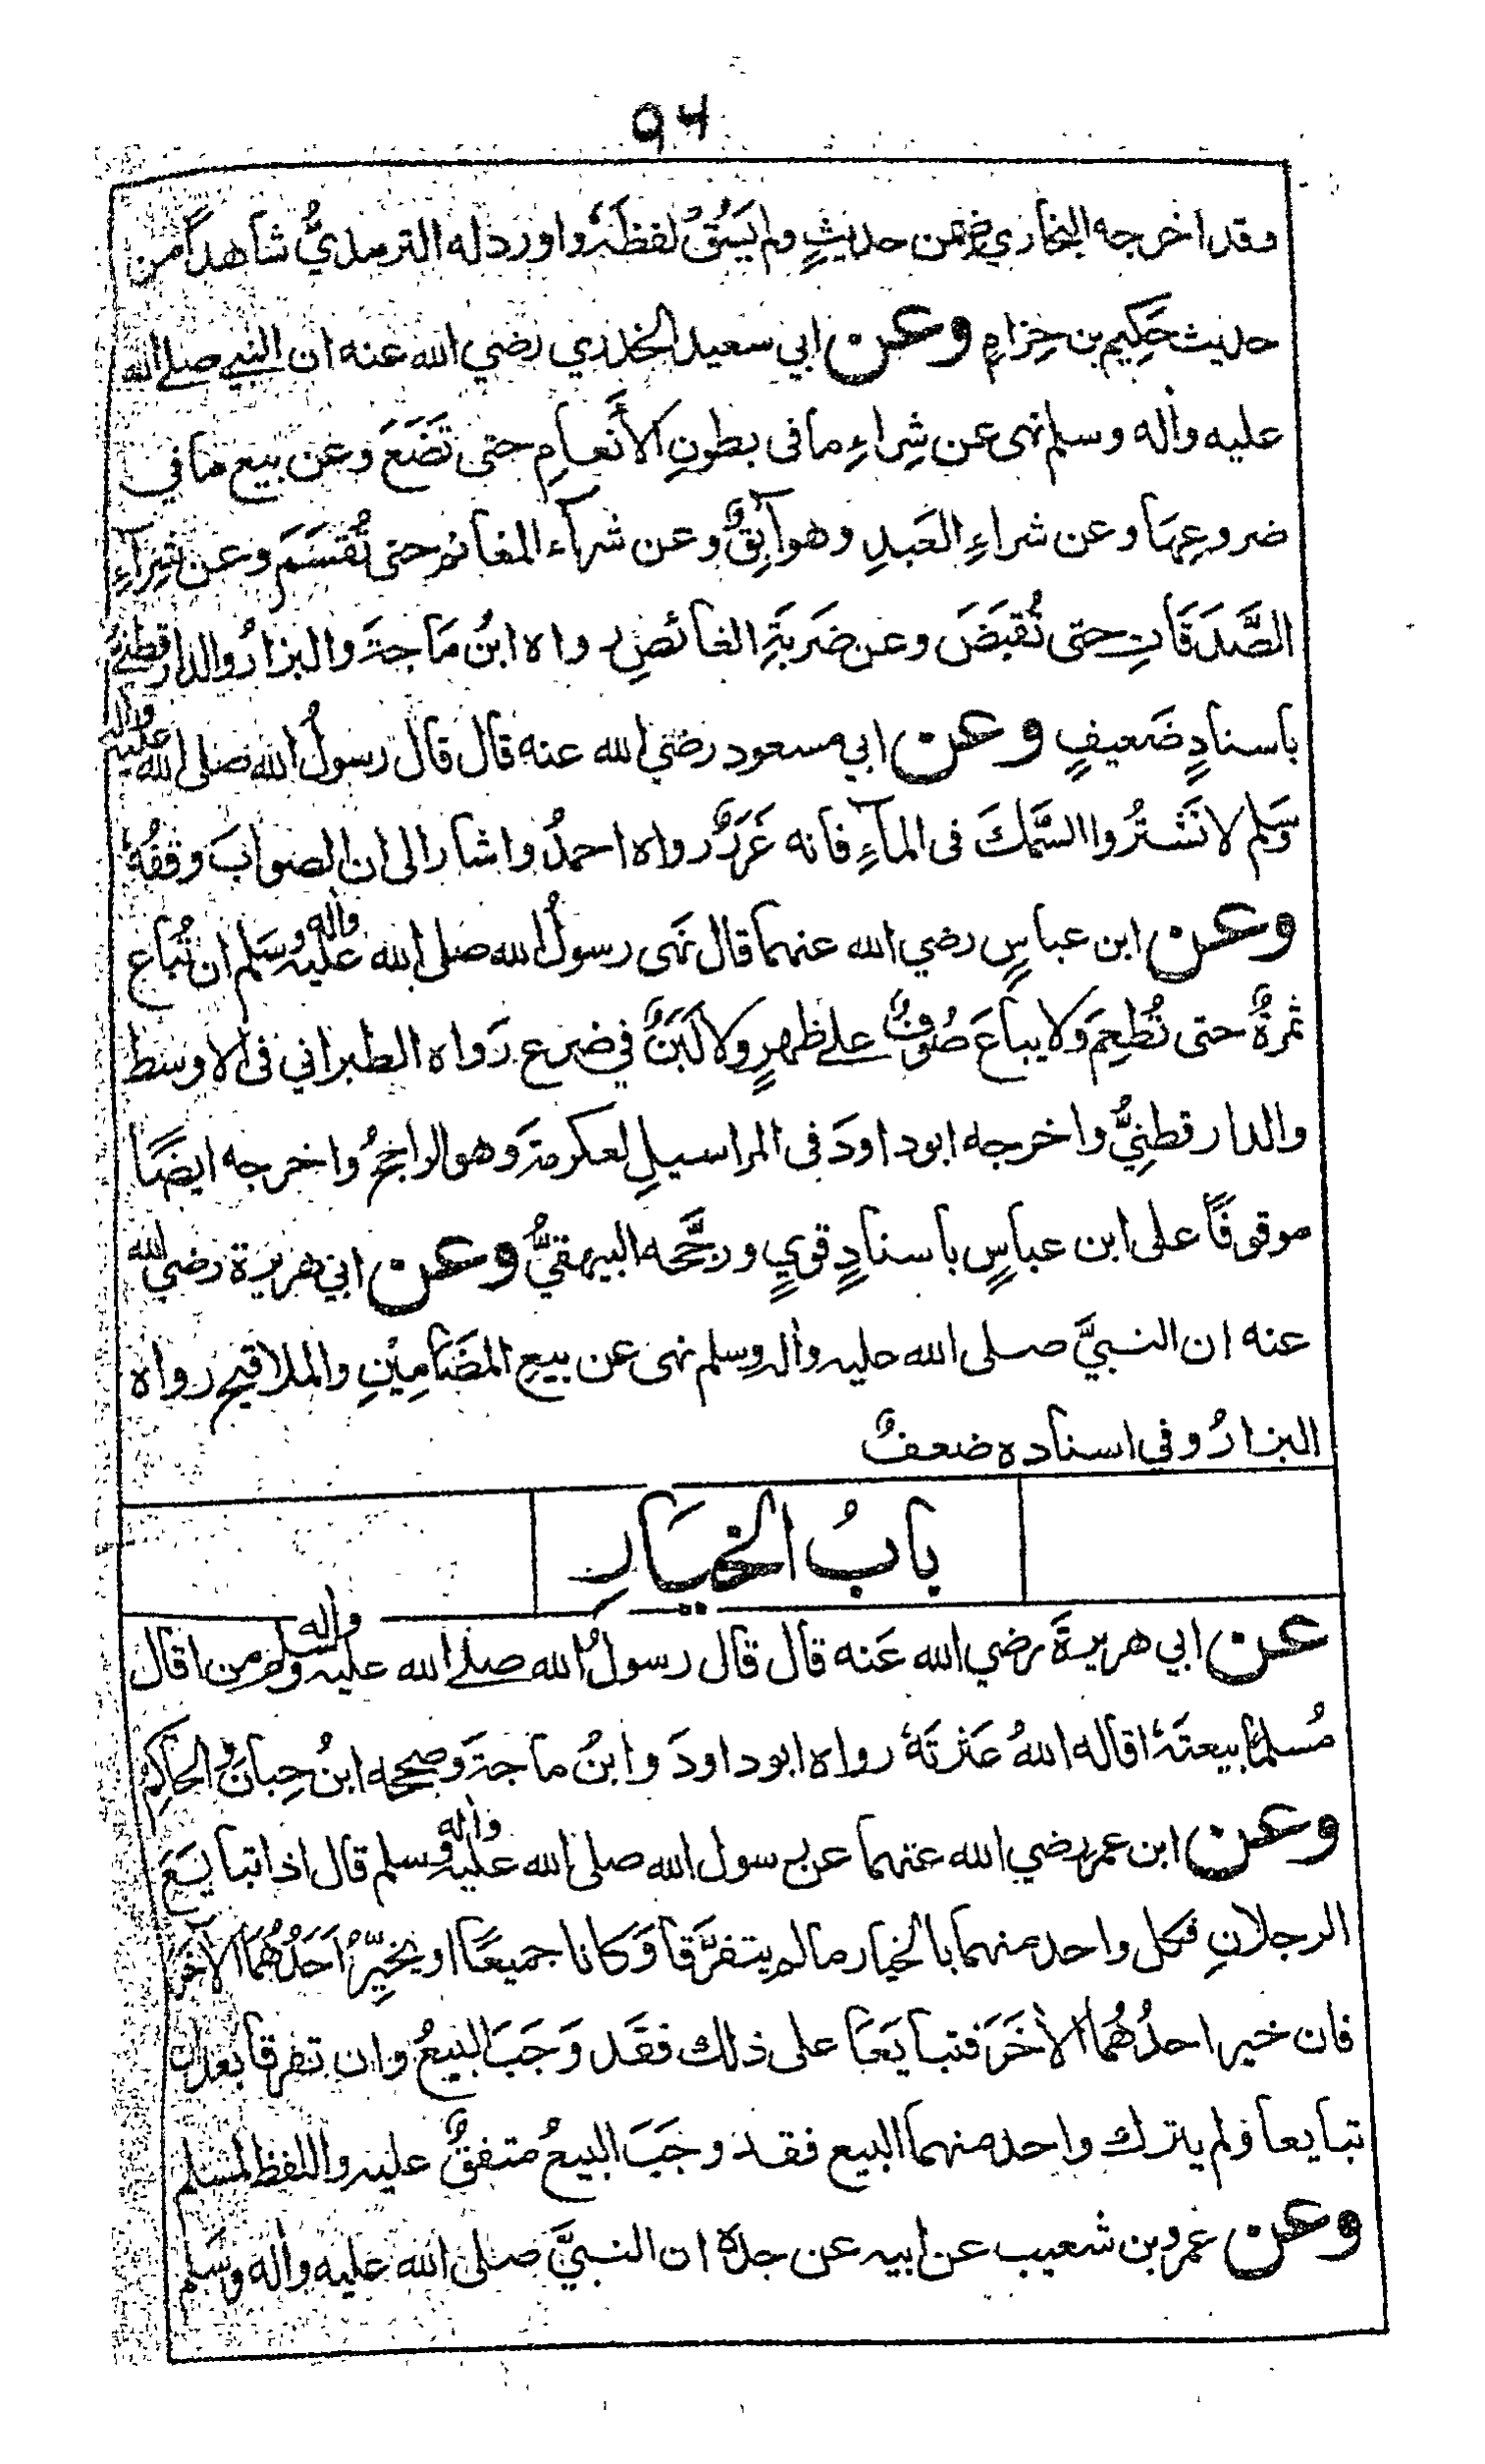 ٩٤
وقد اخرجه البخاري ضمن حديثٍ ولم يَسُقْ لفظَهٗ واورد له الترمذيُّ شاهداً من
حديث حَكِيم بن حِزامٍ وعن ابي سعيد الخدري رضي الله عنه ان النبي صلى الله
عليه واٰله وسلم نهى عن شِراءِ ما فى بطونِ الأَنعامِ حتى تَضَعَ وعن بيع ما في
ضروعِها وعن شراءِ العَبدِ وهو آبِقٌ وعن شرآء المغانم حتى تُقسَمَ وعن شِرآءِ
الصَّدَقَاتِ حتى تُقبَضَ وعن ضَربَةِ الغائصِ رواه ابنُ مَاجةَ والبزارُ والدارقطنيُّ
باسنادٍ ضَعيفٍ وعن ابي مسعود رضي الله عنه قال قال رسولُ الله صلى الله عليه واله
وسَلم لا تَشترُوا السَّمكَ فى المآءِ فانه غَررٌ رواه احمدُ واشار الى ان الصوابَ وقفُهٗ
وعن ابن عباسٍ رضي الله عنهما قال نَهى رسولُ الله صلى الله عليه واٰله وسَلم ان تُباع
ثمرةٌ حتى تُطعِمَ ولا يباعَ صُوفٌ على ظهرٍ ولا لَبَنٌ في ضرع رَواه الطبراني فى الاوسط
والدارقطنِيُّ واخرجه ابوداودَ فى المراسيلِ لعكرمةَ وهو الراجحُ واخرجه ايضًا
موقوفًا على ابن عباسٍ باسنادٍ قويٍ ورجَّحه البيهقيُّ وعن ابي هريرة رضي الله
عنه ان النبيَّ صلى الله عليه واٰله وسلم نهى عن بيعِ المضَامِيْنِ والملاقيح رواه
البزارُ وفي اسناده ضعفٌ
بابُ الخيَارِ
عن ابي هريرةَ رضي الله عَنه قال قال رسولُ الله صلى الله عليه واٰله وسلم من اقال
مُسلمًا بيعتَهٗ اقاله اللهُ عَثرتَهٗ رواه ابوداودَ وابنُ ماجةَ وصححه ابنُ حِبانَ والحاكِمُ
وعن ابن عمر رضي الله عنهما عن رسول الله صلى الله عليه واٰله وسلم قال اذا تبايَعَ
الرجلانِ فكل واحد منهما بالخيار ما لم يتفرَّقا وَكانا جميعًا او يخيِّرُ اَحَدُهُمَا الاٰخرَ
فان خير احدُهُما الاٰخَرَ فتبايَعَا على ذلك فقَد وَجَبَ البيعُ وان تفرقا بعد ان
تبايعا ولم يترك واحد منهما البيع فقد وجَبَ البيعُ متفقٌ عليه واللفظ لمسلم
وعن عمرو بن شعيب عن ابيه عن جده ان النبيَّ صلى الله عليه واٰله وسَلم